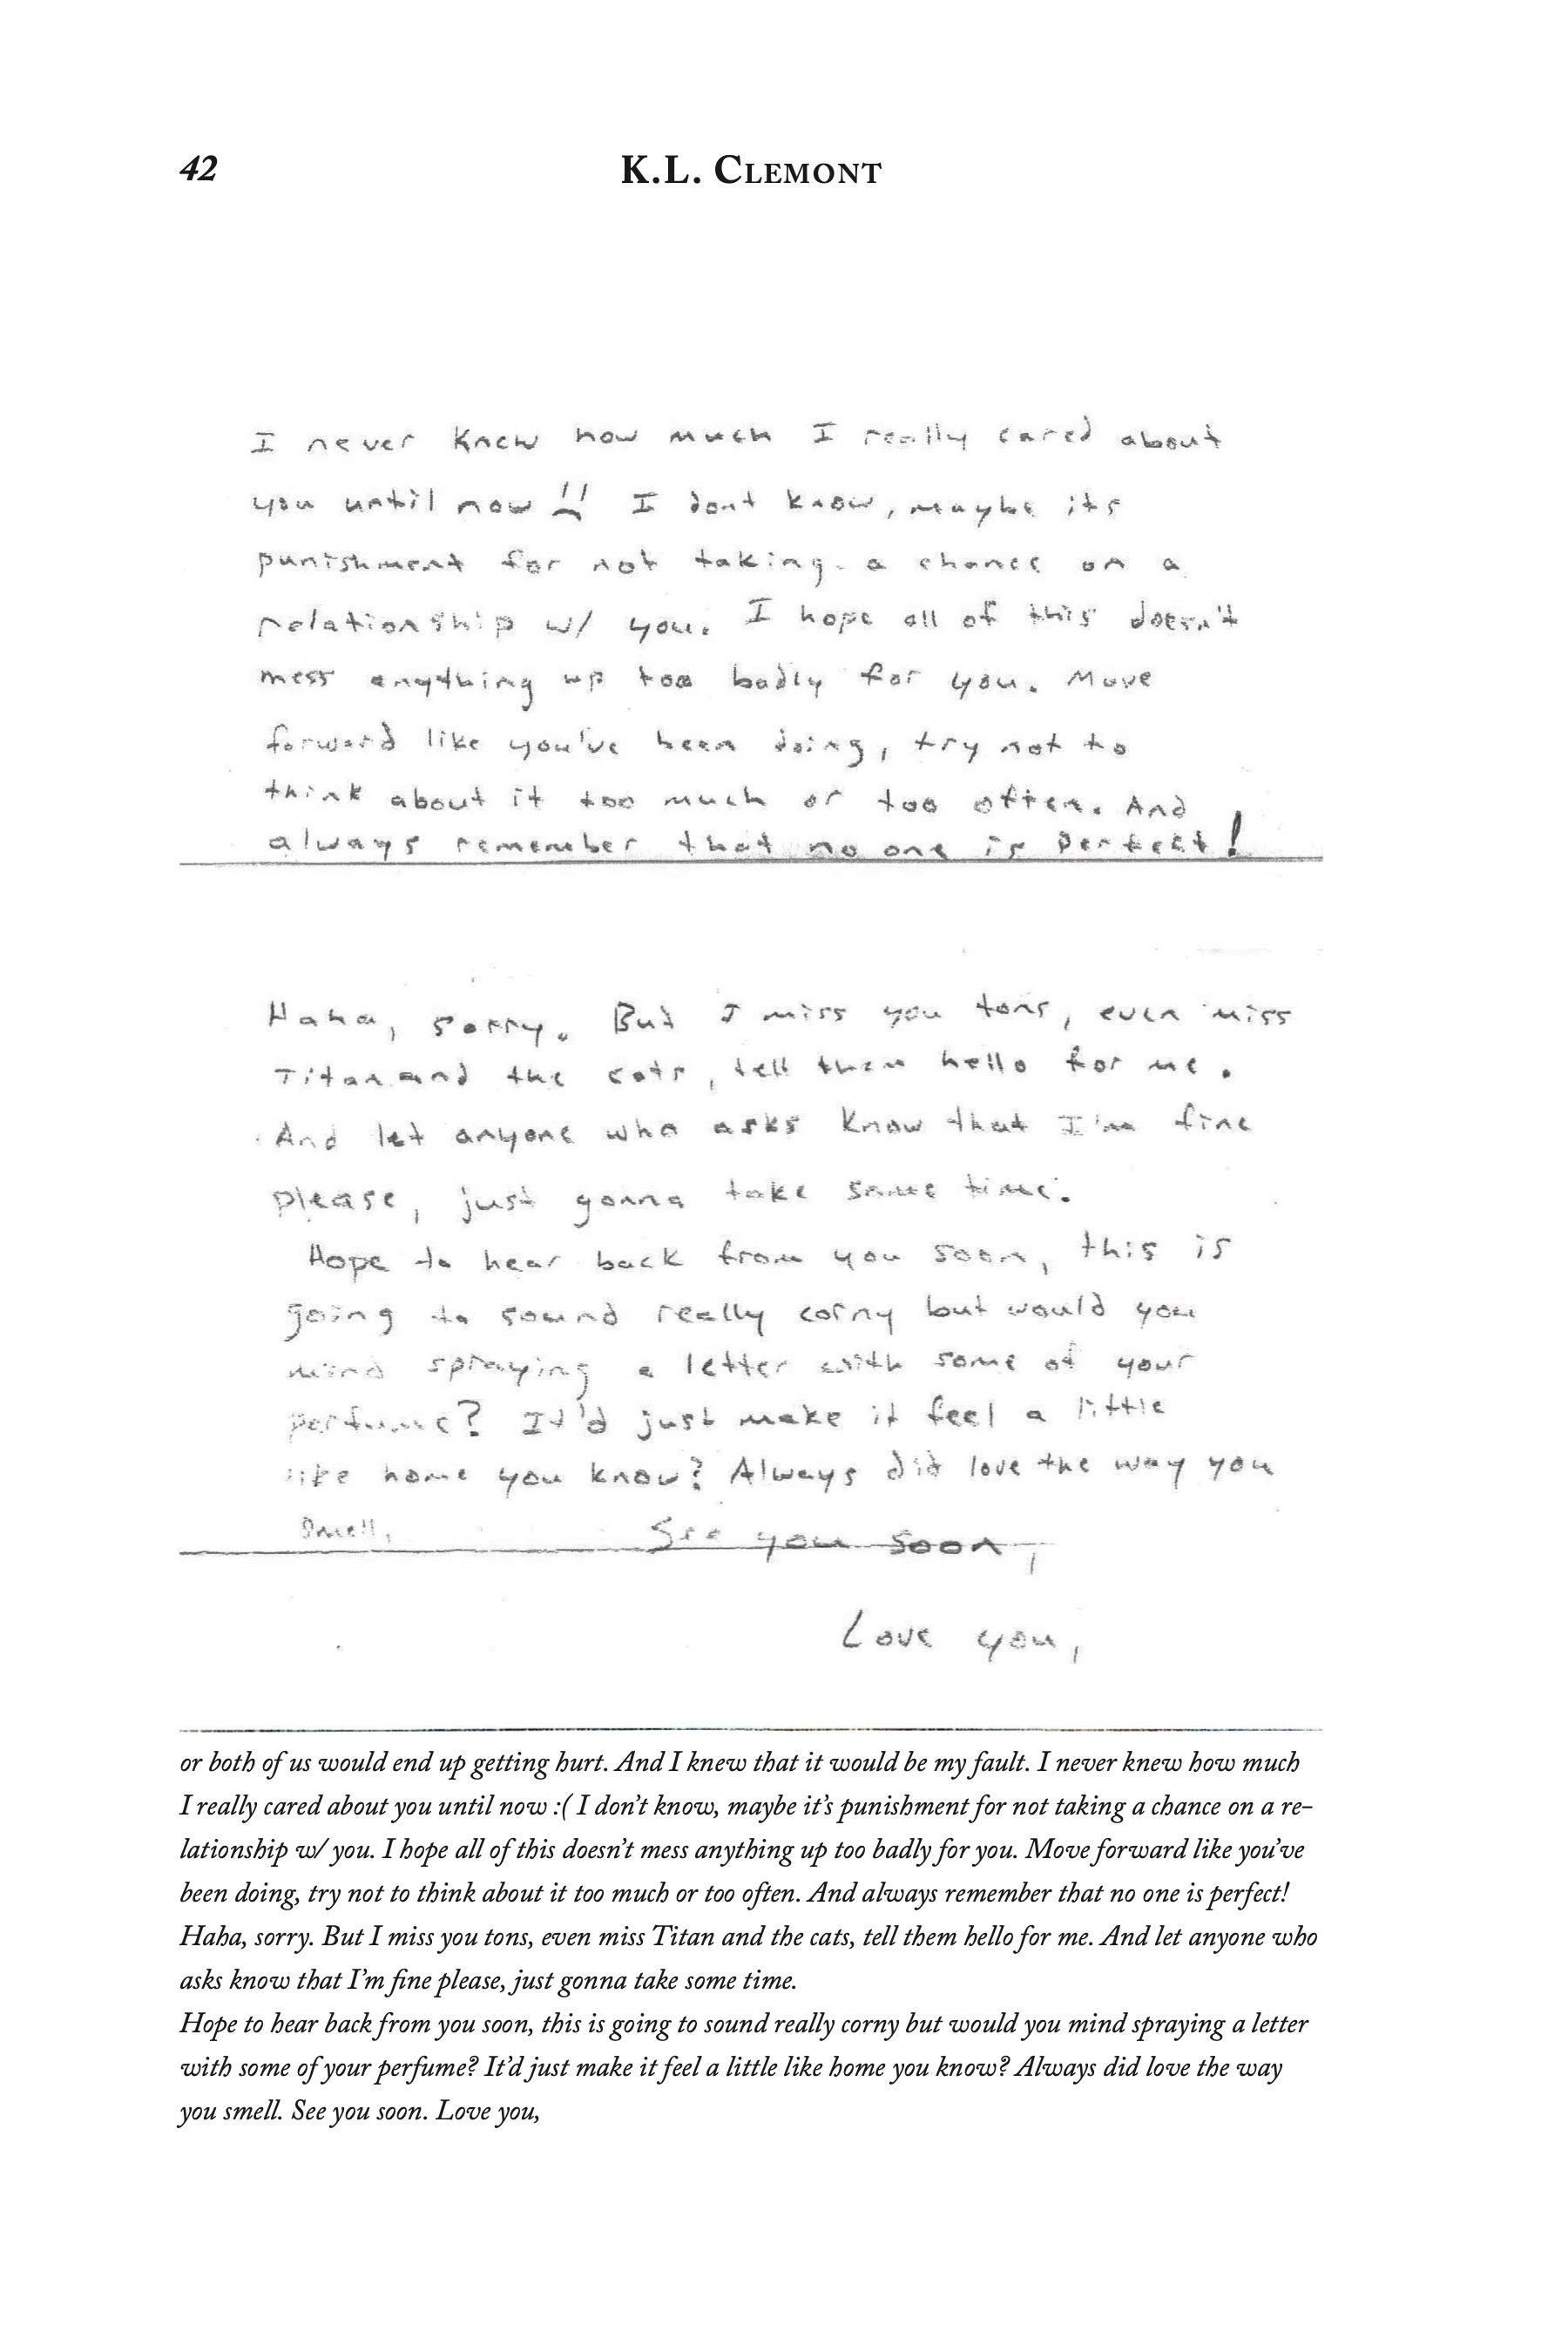 42 K.L. Clemont
I never knew how much I really cared about
you until now !! I dont know, maybe its
punishment for not taking a chance on a
relationship w/ you. I hope all of this doesn't
mess anything up too badly for you. Move
forward like you've been doing, try not to
think about it too much or too often. And
always remember that no one is perfect!
Haha, sorry. But I miss you tons, even miss
Titan and the cats, tell them hello for me.
And let anyone who asks know that I'm fine
please, just gonna take some time.
Hope to hear back from you soon, this is
going to sound really corny but would you
mind spraying a letter with some of your
perfume? It'd just make it feel a little
like home you know? Always did love the way you
smell.
See you soon,
Love you,
or both of us would end up getting hurt. And I knew that it would be my fault. I never knew how much
I really cared about you until now :( I don't know, maybe it's punishment for not taking a chance on a re-
lationship w/ you. I hope all of this doesn't mess anything up too badly for you. Move forward like you've
been doing, try not to think about it too much or too often. And always remember that no one is perfect!
Haha, sorry. But I miss you tons, even miss Titan and the cats, tell them hello for me. And let anyone who
asks know that I'm fine please, just gonna take some time.
Hope to hear back from you soon, this is going to sound really corny but would you mind spraying a letter
with some of your perfume? It'd just make it feel a little like home you know? Always did love the way
you smell. See you soon. Love you,